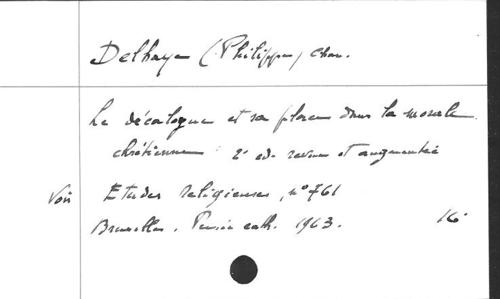 Delhaye (Philippe) chan.
Le décalogue et sa place dans la morale
chrétienne 2e ed. revue et augmentée
Voir Etudes religieuses, n° 761
Bruxelles. Pensée cath. 1963. 16°